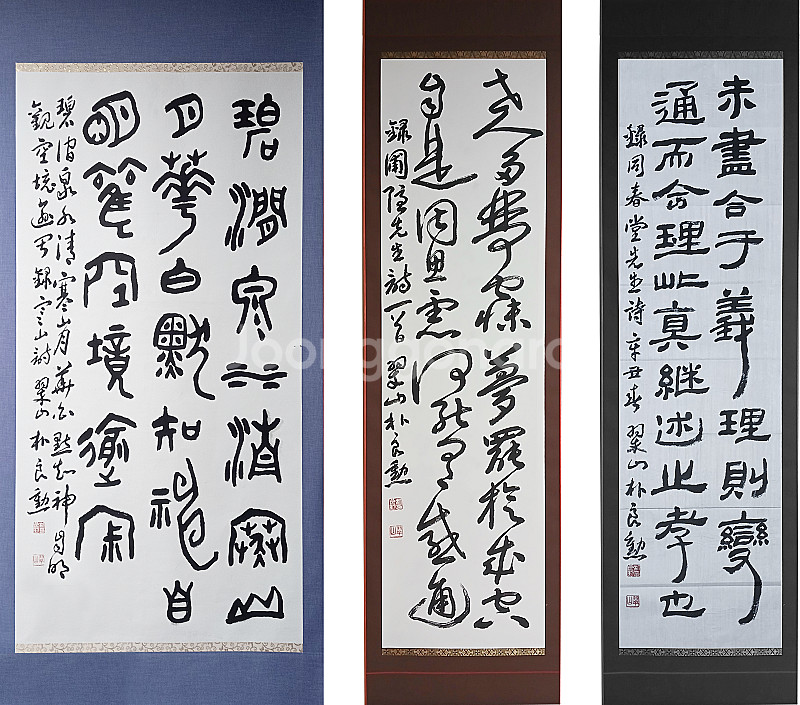 碧澗泉水清寒山
月華白默知神自
明觀空境逾寂
碧澗泉水清寒山月華白默知神自明
觀空境逾寂 錄寒山詩 翠山 朴良勳
世人多夢寐夢罷旋成空
自是因思慮何能有感通
錄圃隱先生詩一首 翠山 朴良勳
未盡合于義理則變
通而合理此真継述之孝也
錄同春堂先生詩 辛丑春 翠山 朴良勳